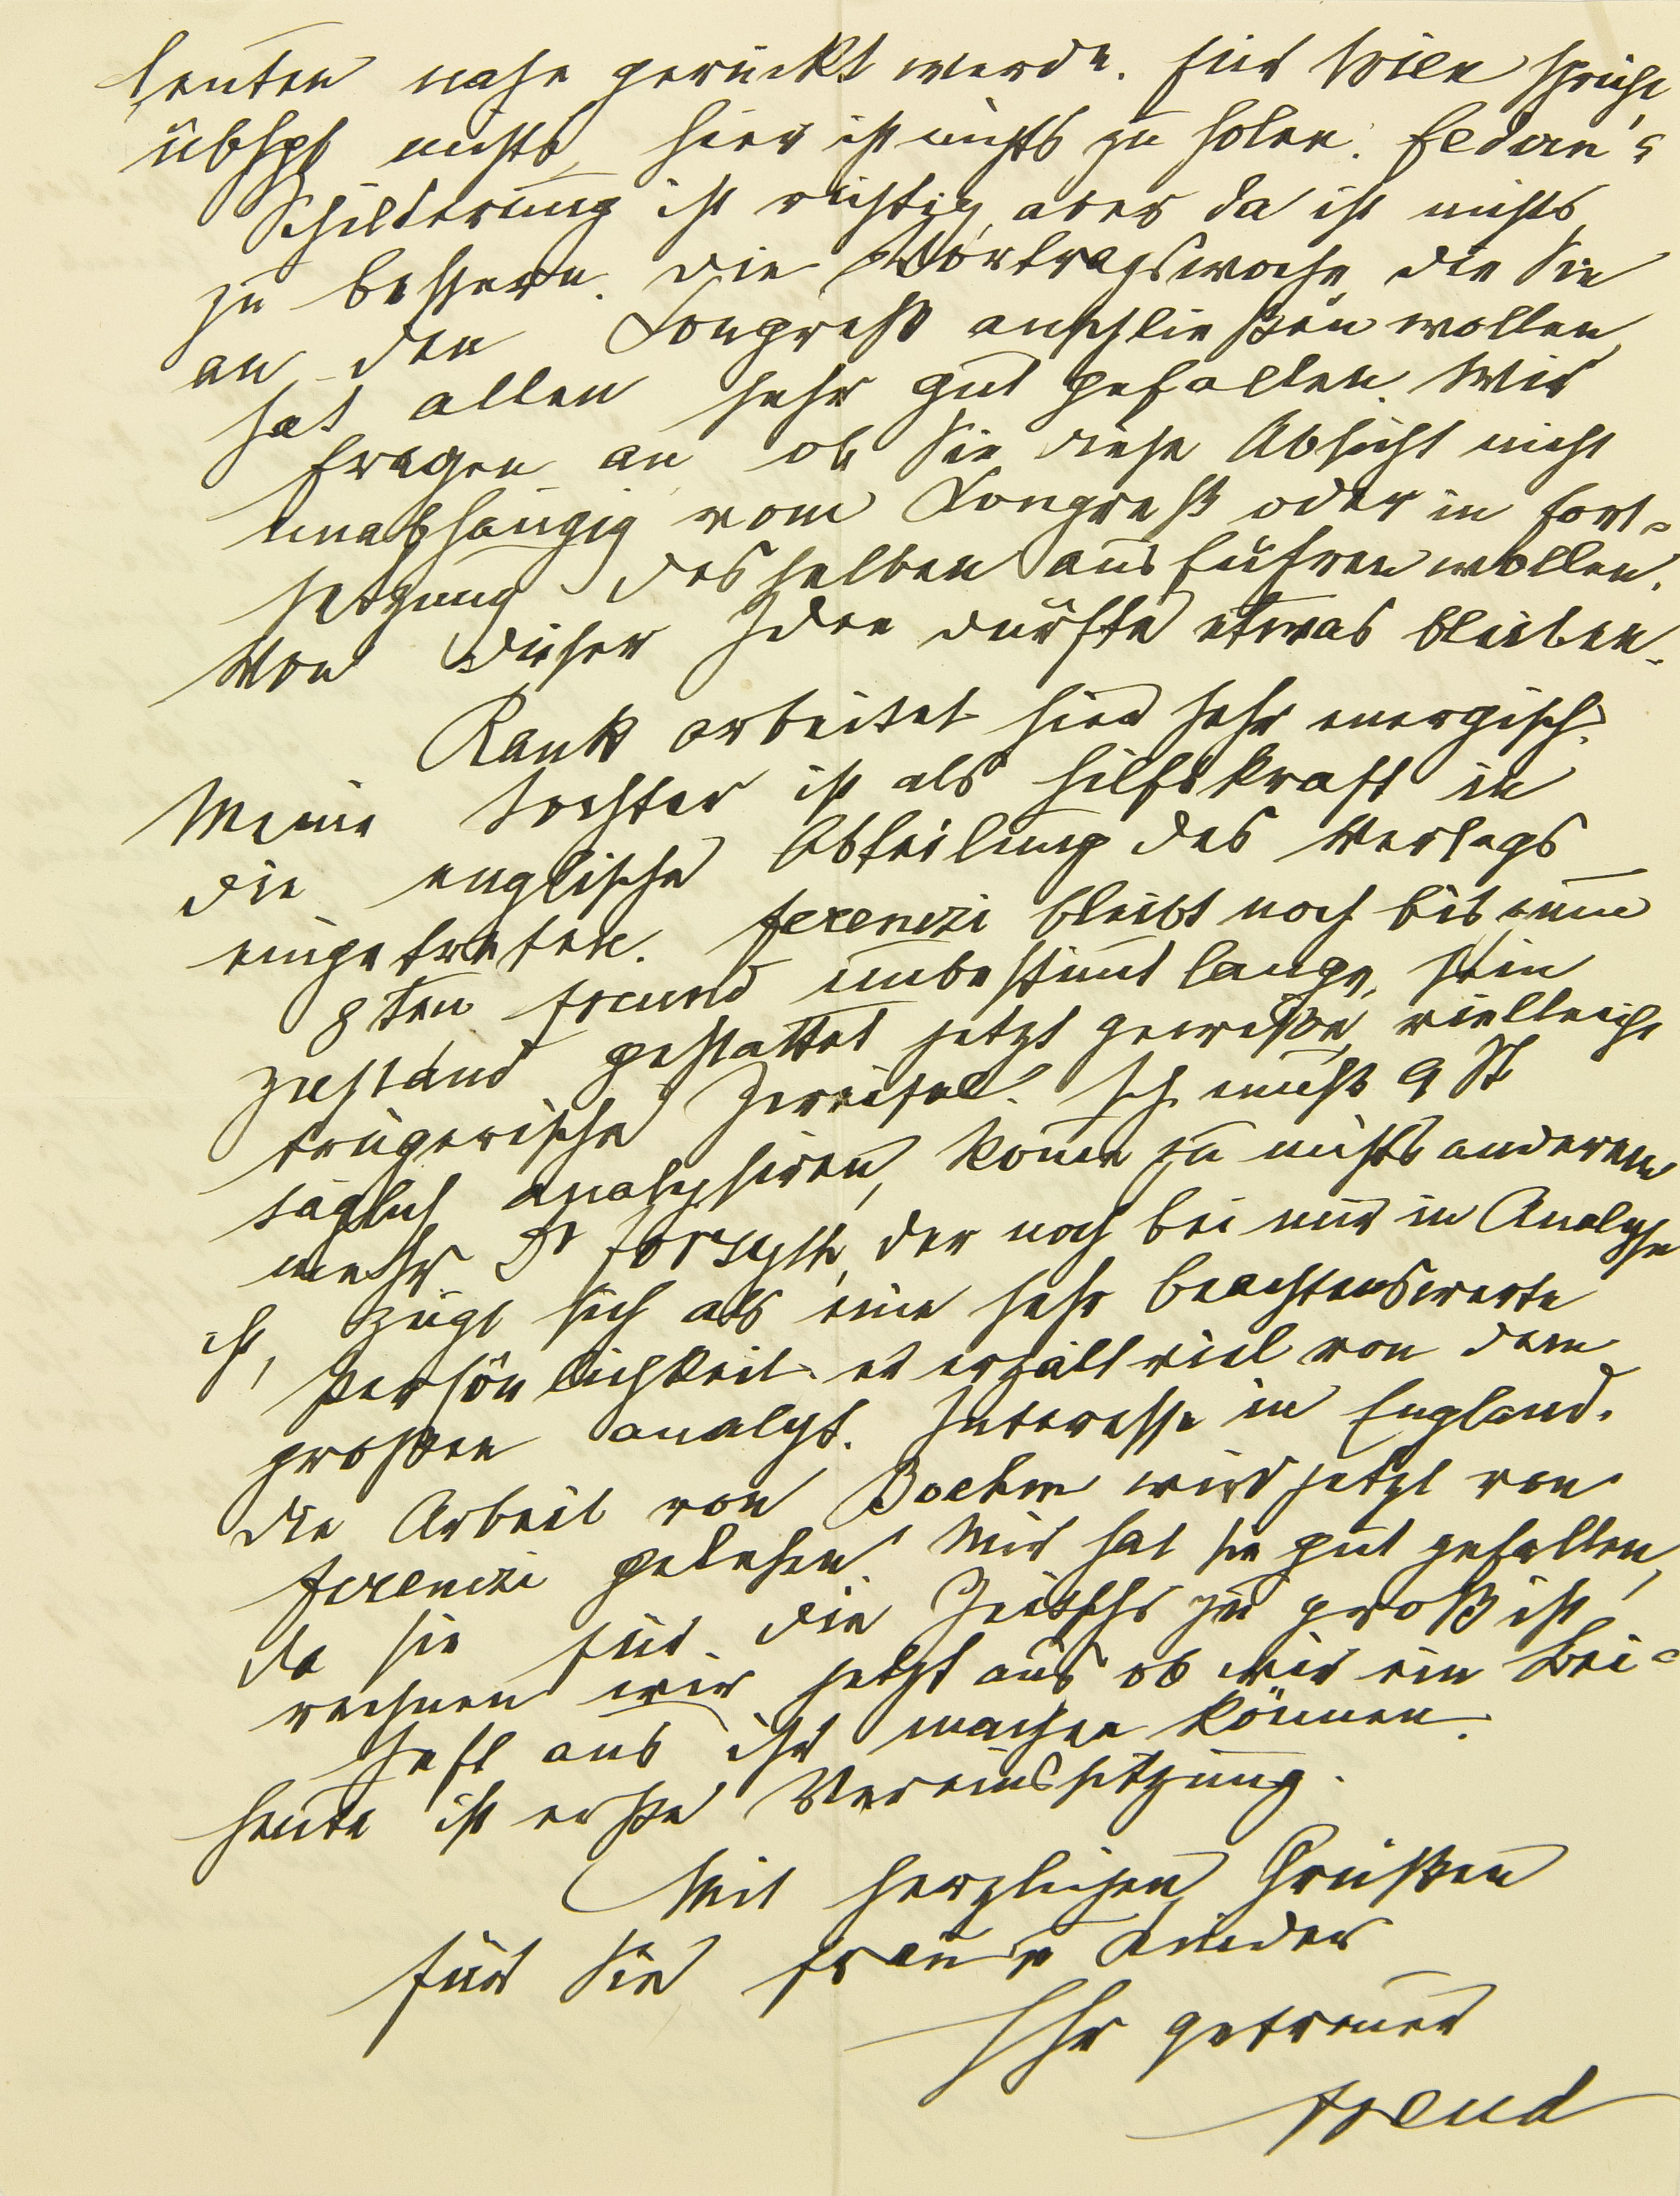 leuten nahe gerückt werde. Für Wien spricht
nichts, hier ist nichts zu holen. Eedan's
Schilderung ist richtig, aber da ist nichts
zu bessern. Die Vortragswoche, die Sie
an den Kongreß anschließen wollen,
hat allen sehr gut gefallen. Wir
fragen an, ob Sie diese Absicht nicht
unabhängig vom Kongreß oder in Fort-
setzung desselben ausführen wollen.
Von dieser Idee dürfte etwas bleiben.
Rank arbeitet hier sehr energisch.
Meine Tochter ist als Hilfskraft in
die englische Abteilung des Verlags
eingetreten. Ferenczi bleibt noch bis zum
8ten, Freund unbestimmt lange, sein
Zustand gestattet jetzt gewisse, vielleicht
trügerische Zweifel. Ich muß 9 St
täglich analysiren, komme zu nichts anderem
mehr. Dr Forsyth, der noch bei mir in Analyse
ist, zeigt sich als eine sehr beachtenswerte
Persönlichkeit. er erzält viel von dem
großen analyt. Interesse in England.
Die Arbeit von Boehm wird jetzt von
Ferenczi gelesen. Mir hat sie gut gefallen,
da sie für die Zeitschr zu groß ist,
rechnen wir jetzt aus ob wir ein Bei-
heft aus ihr machen können.
Heute ist erste Vereinssitzung.
Mit herzlichen Grüßen
für Sie Frau u Kinder
Ihr getreuer
Freud